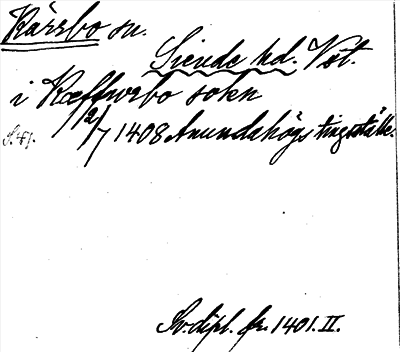 Kärrbo sn.
Siende hd. Vstm.
i Kæffwrbo sokn
12/7 1408 Anundahögs tingställe.
Sv. dipl. fr. 1401. II.